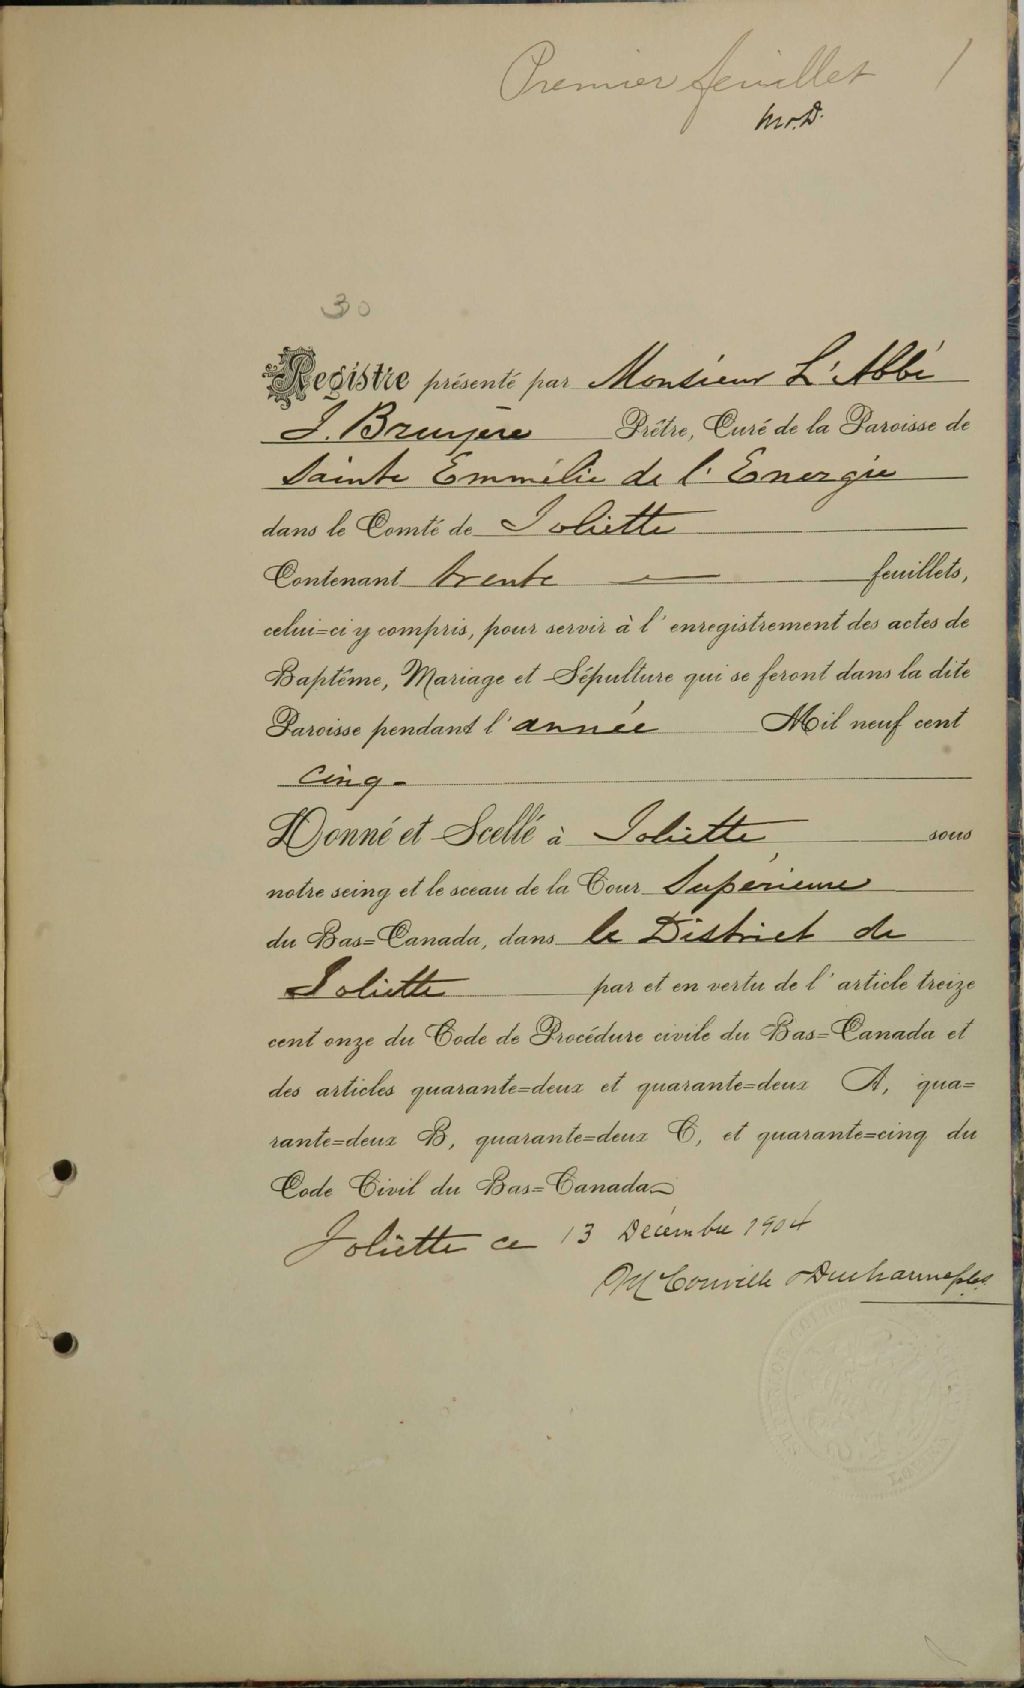 Premier feuillet 1
M.D.
30
Registre présenté par Monsieur L'Abbé
J. Bruyère Prêtre, Curé de la Paroisse de
Sainte Emmélie de l'Energie
dans le Comté de Joliette
Contenant trente feuillets,
celui=ci y compris, pour servir à l'enregistrement des actes de
Baptême, Mariage et Sépulture qui se feront dans la dite
Paroisse pendant l'année Mil neuf cent
cinq -
Donné et Scellé à Joliette sous
notre seing et le sceau de la Cour Supérieure
du Bas=Canada, dans le District de
Joliette par et en vertu de l'article treize
cent onze du Code de Procédure civile du Bas=Canada et
des articles quarante=deux et quarante=deux A, qua=
rante=deux B, quarante=deux C, et quarante=cinq du
Code Civil du Bas=Canada
Joliette ce 13 Décembre 1904
Desharnais
SUPERIOR COURT